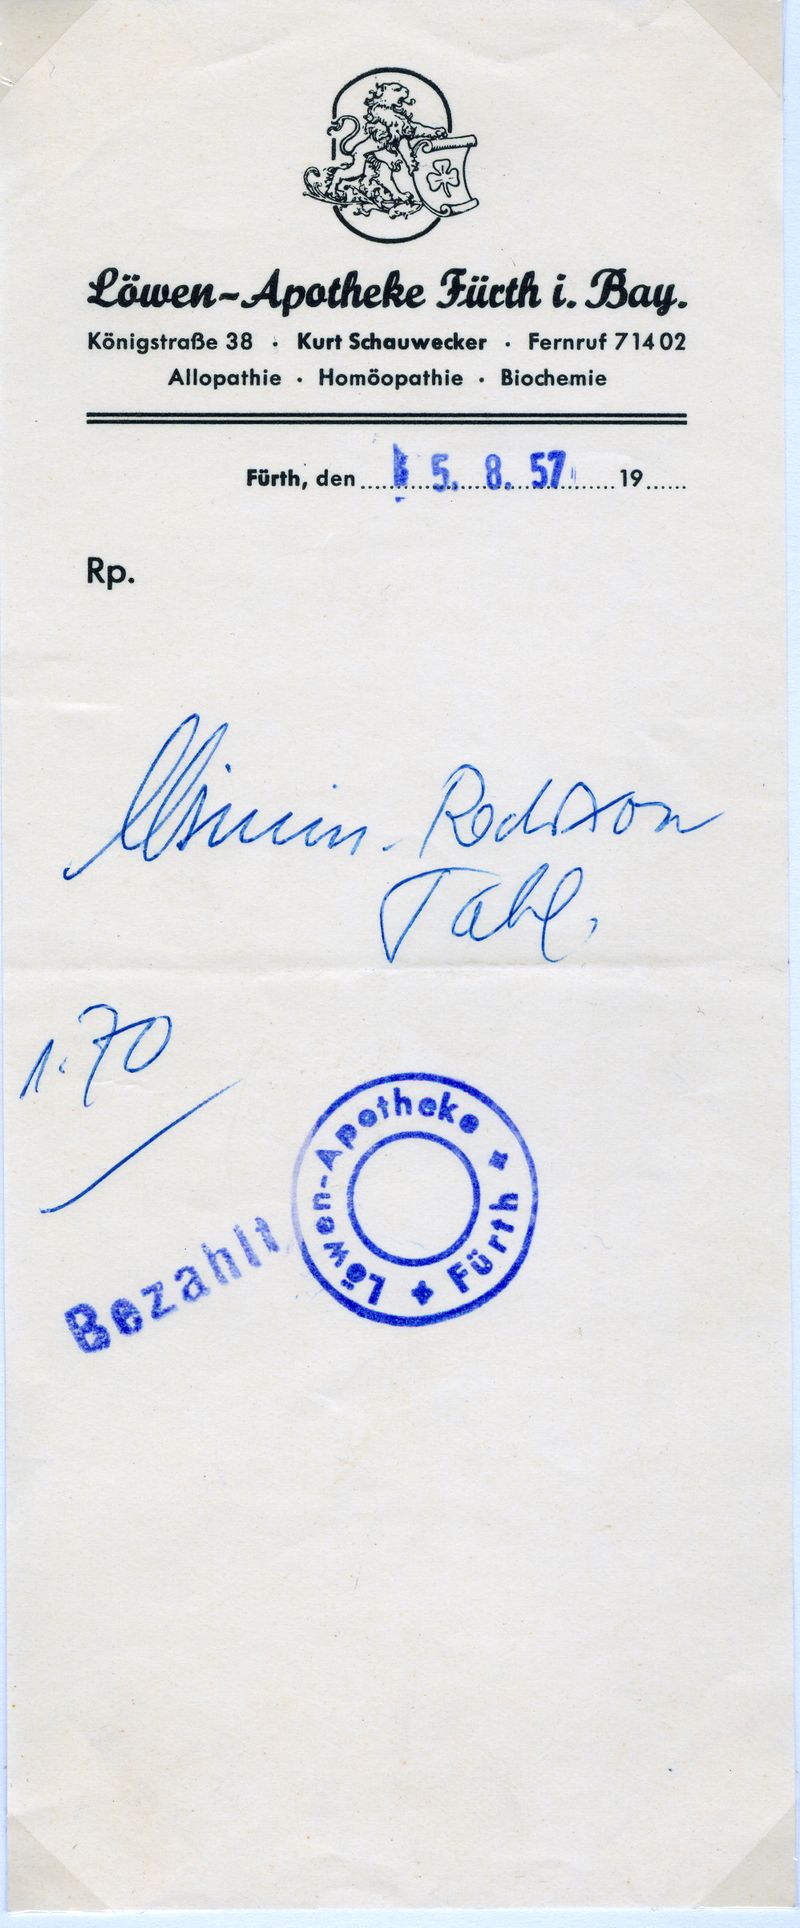 Löwen-Apotheke Fürth i. Bay.
Königstraße 38 · Kurt Schauwecker · Fernruf 71402
Allopathie · Homöopathie · Biochemie
Fürth, den 5. 8. 57 19
Rp.
Tabl.
1.70
Bezahlt
Löwen-Apotheke
Fürth